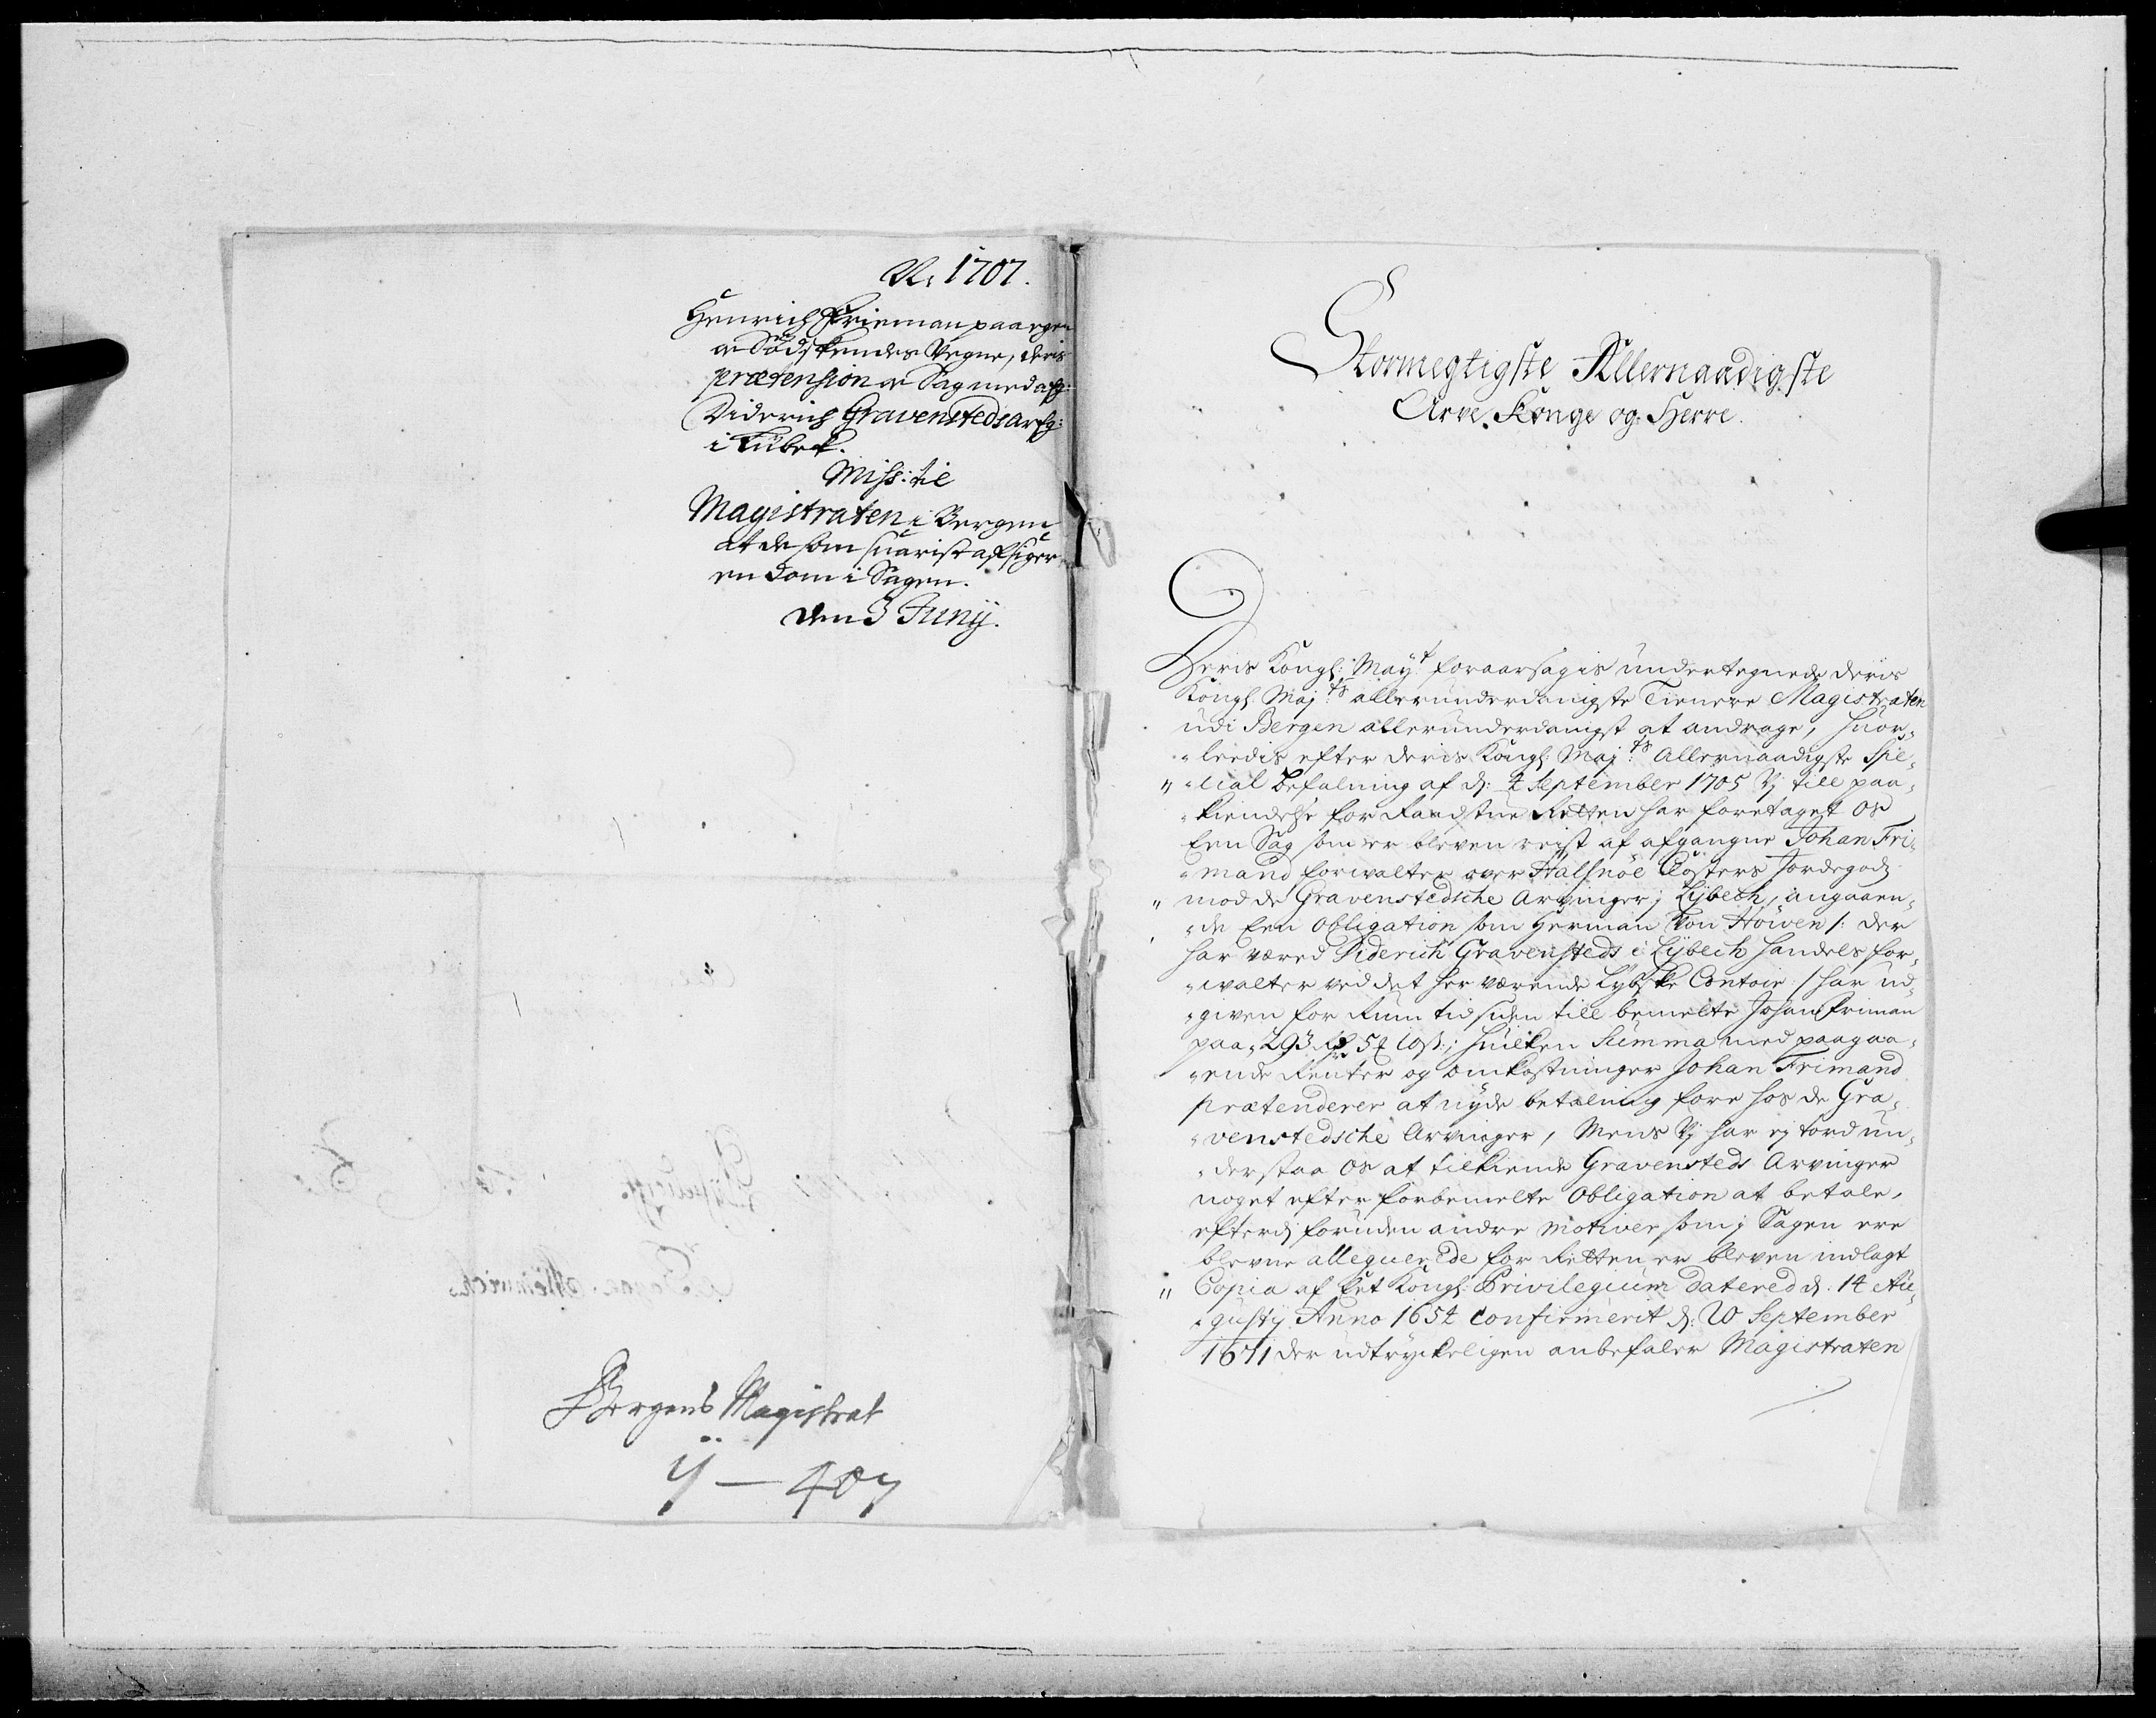 1707.
Henrich Frieman paa egen
oc Södskendes Vegne, deris
prætension oc Sag med afg:
Diderich Gravensteds arfg:
i Lübek.
Miss: til
Magistraten i Bergen
at de som snarist afsiger
en Dom i Sagen.
den 3 Junij.
Bergens Magistrat
ÿ - 407
Stormegtigste Allernaadigste
Arve Konge og Herre
Deris Kongl: Mayt foraarsagis undertegnede Deris
Kongl. Maj:ts allerunderdanigste Tienere Magistraten
udi Bergen allerunderdanigst at andrage, huor-
-ledis efter Deris Kongl: Maj:ts Allernaadigste Spe-
" -cial Befalning af d: 4 September 1705 Vj till paa-
-kiendelse for Raadstue Retten har foretaget os
Een Sag som er bleven reist af afgangne Johan Fri-
-mand forwalter over Halsnöe Closters Jordegods
" mod de Gravenstedsche Arvinger j Lÿbech, angaaen-
-de Een Obligation som Herman von Höwen /: der
har været Diderich Gravensteds i Lÿbech Handels for-
-walter ved det her værende Lybske Contoir :/ har ud-
-given for Rum tid siden till bemelte Johan Friman
paa 293 Rdr 5 10 s:; huilken Summa med paagaa-
-ende Renter og omkostninger Johan Frimand
prætenderer at nyde betaling fore hos de Gra-
-venstedsche Arvinger, Mens Vj har ej tord un-
-derstaa os at tilkiende Gravensteds Arvinger
noget efter forbemelte Obligation at betale,
efterdj foruden andre motiver som j Sagen ere
blevne alleguerede for Retten er bleven indlagt
" Copia af Et Kongl: Privilegium Datered d. 14 Au-
-gustÿ Anno 1654 confirmerit d: 20 September
1671 der udtryckeligen anbefaler Magistraten